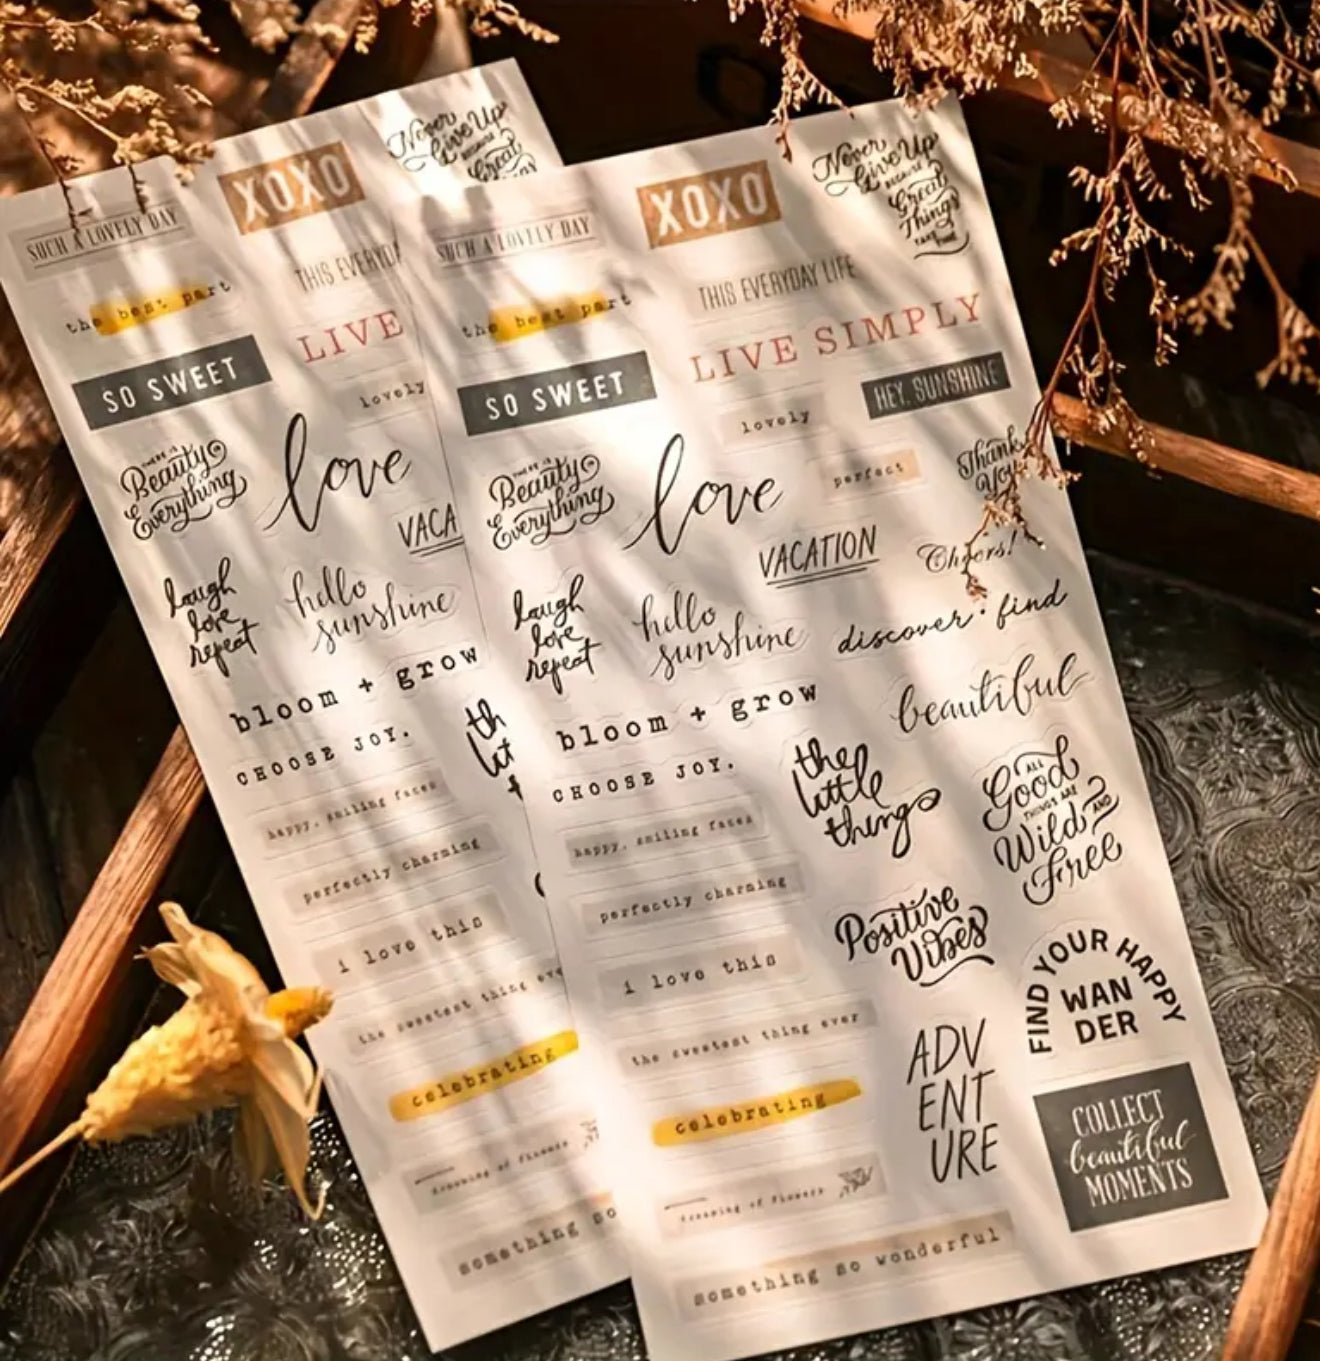 SUCH A LOVELY DAY
XOXO
Never
Give Up
BECAUSE
Great
THIS EVERYDA
the best part
LIVE
SO SWEET
lovely
THERE IS
Beauty
IN
Everything
love
VACA
laugh
love
repeat
hello
sunshine
bloom + grow
CHOOSE JOY.
th
lit
t
happy, smiling faces
perfectly charming
i love this
the sweetest thing eve
celebrating
dreaming of flowers
something so
SUCH A LOVELY DAY
XOXO
Never
Give Up
BECAUSE
Great
Things
TAKE TIME
THIS EVERYDAY LIFE
the best part
LIVE SIMPLY
SO SWEET
HEY, SUNSHINE
lovely
THERE IS
Beauty
IN
Everything
love
perfect
Thank
You
VACATION
Cheers!
laugh
love
repeat
hello
sunshine
discover · find
bloom + grow
beautiful
CHOOSE JOY.
the
little
things
ALL
Good
THINGS ARE
Wild AND
Free
happy, smiling faces
perfectly charming
Positive
Vibes
i love this
FIND YOUR HAPPY
WAN
DER
the sweetest thing ever
ADV
ENT
URE
celebrating
COLLECT
beautiful
MOMENTS
dreaming of flowers
something so wonderful